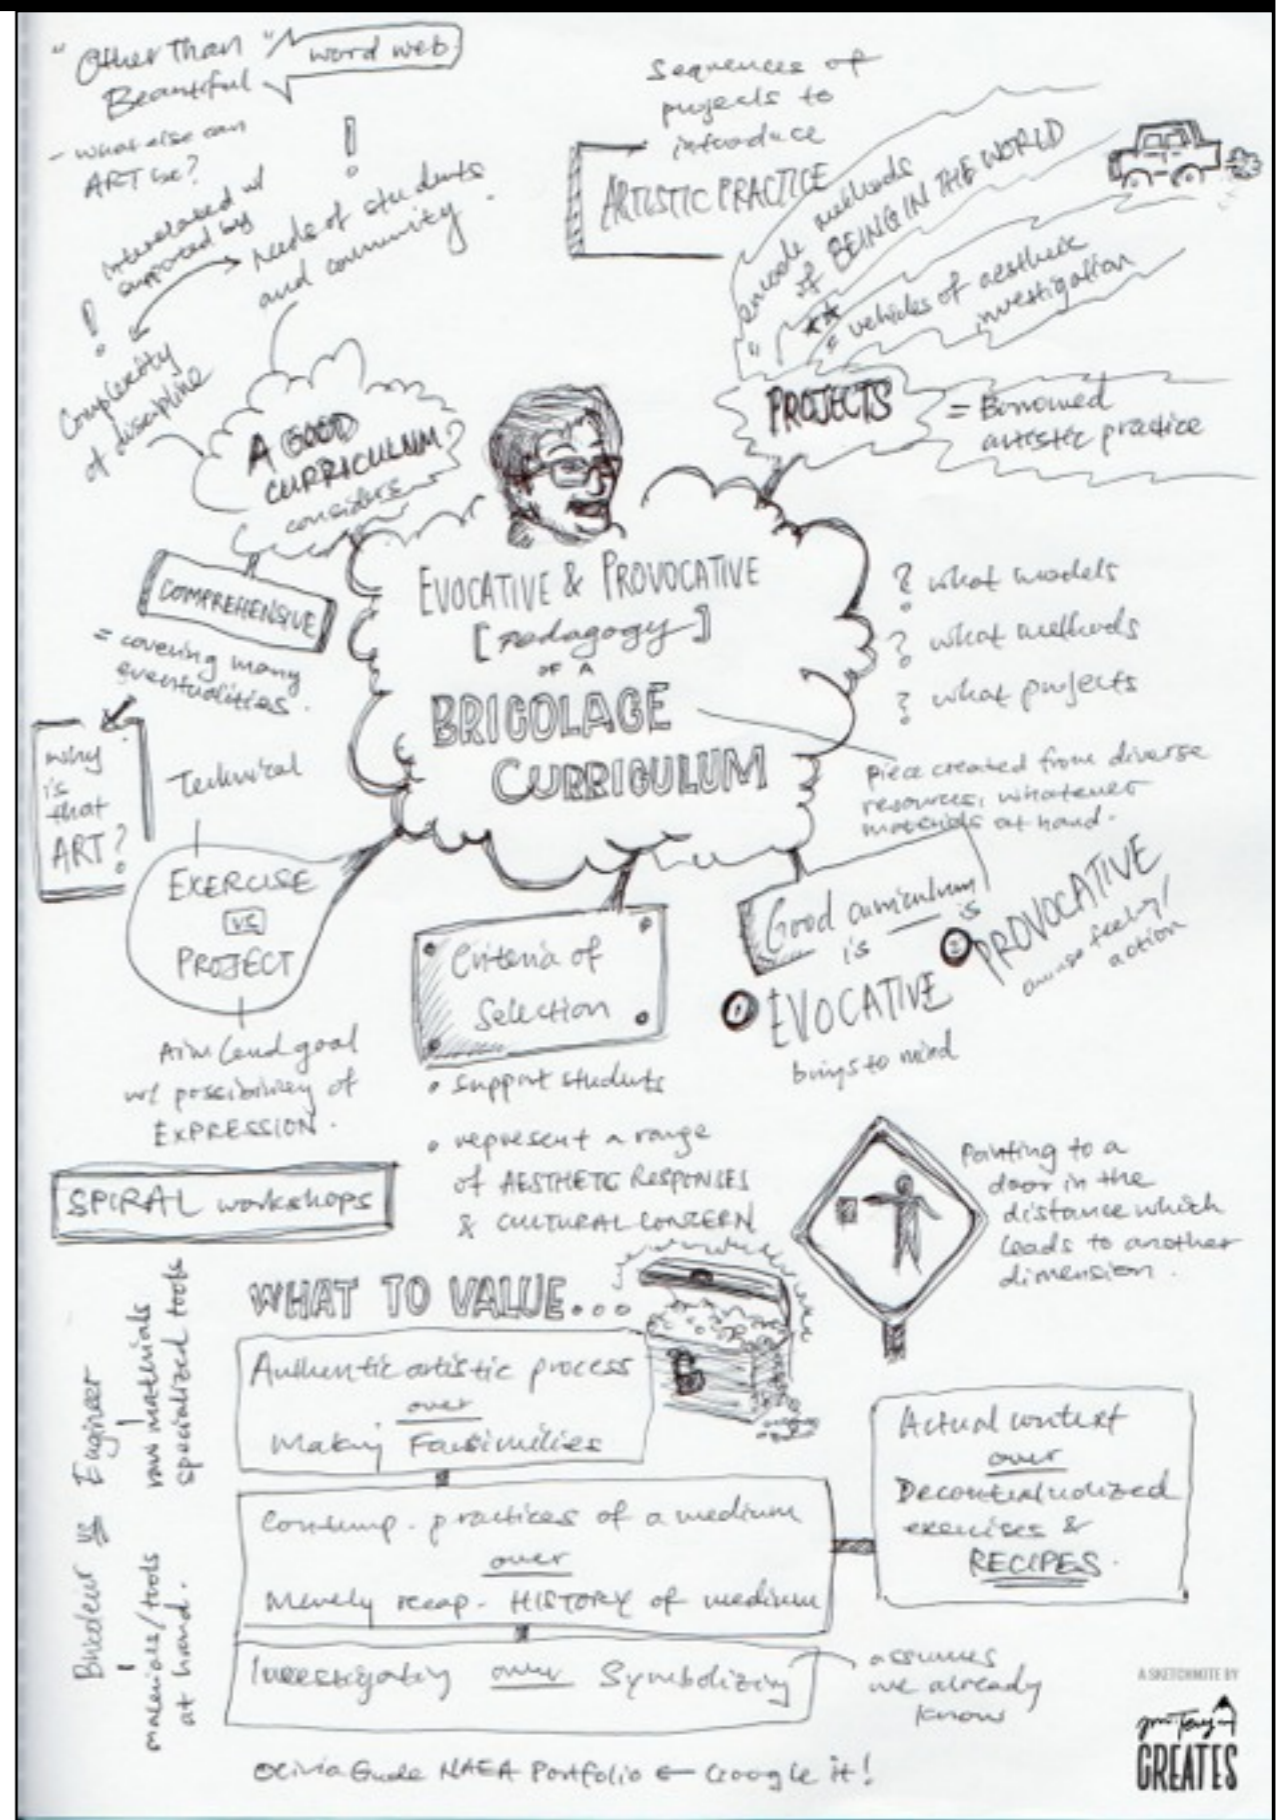 "Other Than Beautiful"
word web.
- what else can
ART be?
!
interrelated w/
supported by
needs of students
and community.
!
Complexity
of discipline
A GOOD
CURRICULUM?
considers
COMPREHENSIVE
= covering many
eventualities.
why
is
that
ART?
Technical
EXERCISE
VS
PROJECT
Aim/end goal
w/ possibility of
EXPRESSION.
Sequences of
projects to
introduce
ARTISTIC PRACTICE
"encode methods
of BEING IN THE WORLD
** "vehicles of aesthetic
investigation
PROJECTS
= Borrowed
artistic practice
EVOCATIVE & PROVOCATIVE
[pedagogy]
OF A
BRICOLAGE
CURRICULUM
? what models
? what methods
? what projects
piece created from diverse
resources, whatever
materials at hand.
Good curriculum
is
is
① EVOCATIVE
brings to mind
② PROVOCATIVE
arouse feeling/
action
Criteria of
Selection
• support students
• represent a range
of AESTHETIC RESPONSES
& CULTURAL CONCERN
Pointing to a
door in the
distance which
leads to another
dimension.
SPIRAL workshops
Bricoleur vs Engineer
materials/tools
at hand.
raw materials
specialized tools
WHAT TO VALUE...
Authentic artistic process
over
Making Facsimilies
Contemp. practices of a medium
over
Merely recap. HISTORY of medium
Investigating over Symbolizing
assumes
we already
know
Actual context
over
Decontextualized
exercises &
RECIPES.
Olivia Gude NAEA Portfolio ← Google it!
A SKETCHNOTE BY
CREATES